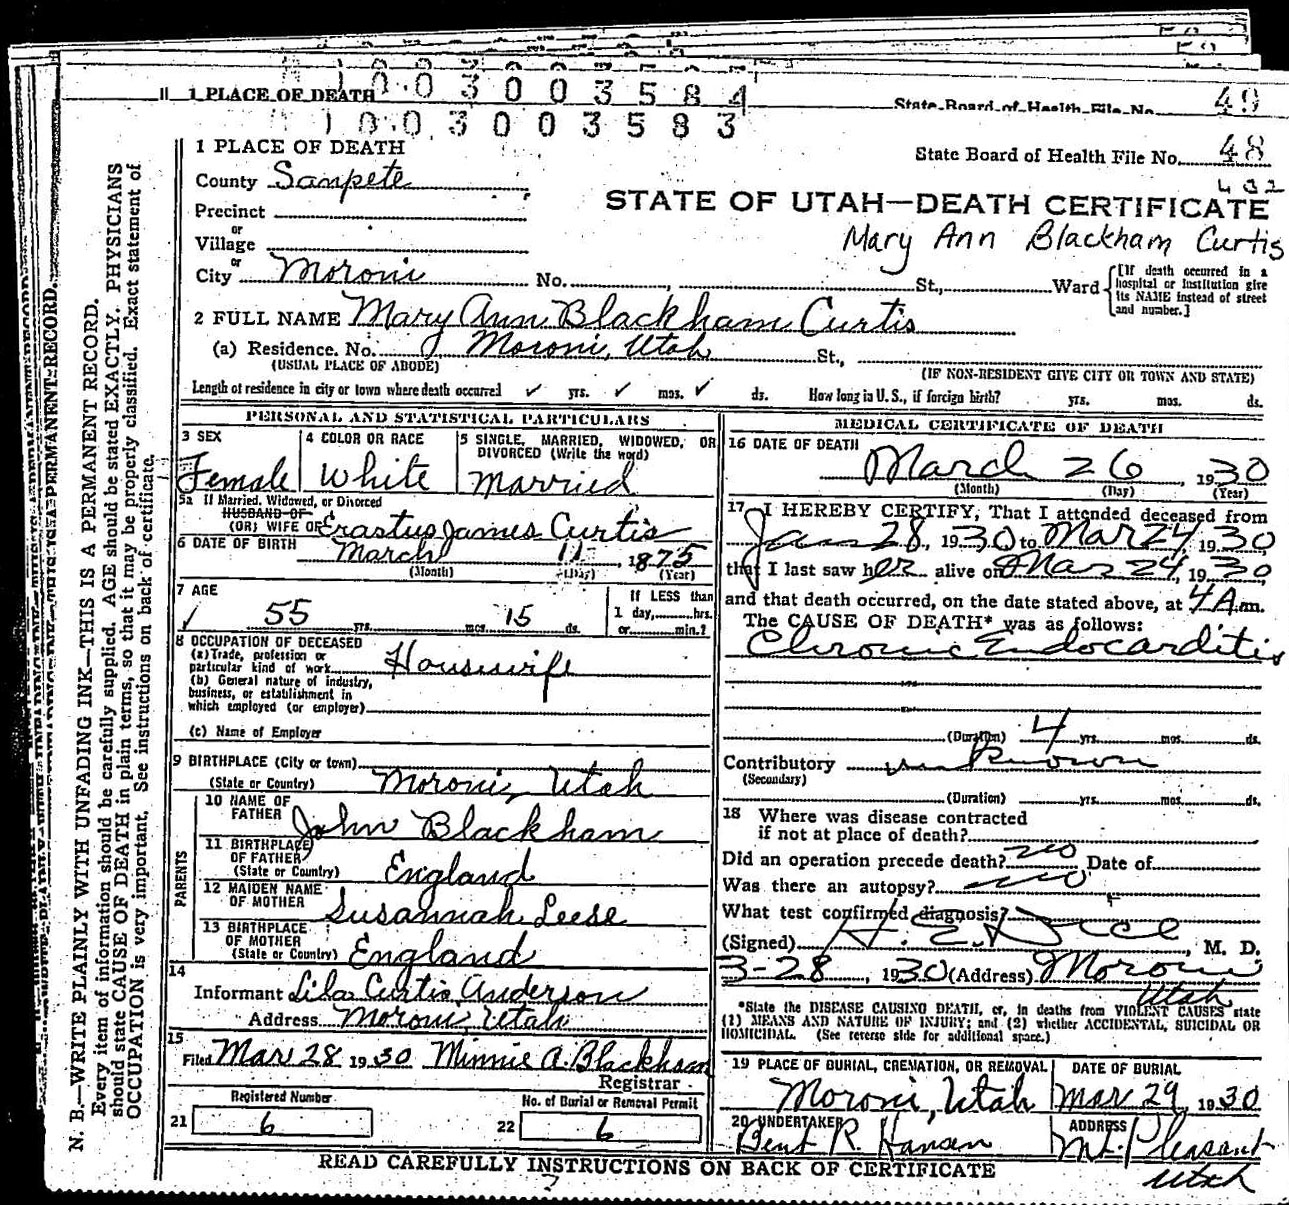 1 PLACE OF DEATH
1003003584
State Board of Health File No. 49
1003003583
1 PLACE OF DEATH
State Board of Health File No. 48
432
County Sanpete
STATE OF UTAH—DEATH CERTIFICATE
Precinct
or
Mary Ann Blackham Curtis
Village
or
City Moroni No. , St., Ward
[If death occurred in a hospital or institution give its NAME instead of street and number.]
2 FULL NAME Mary Ann Blackham Curtis
(a) Residence. No. Moroni, Utah St.,
(USUAL PLACE OF ABODE) (IF NON-RESIDENT GIVE CITY OR TOWN AND STATE)
Length of residence in city or town where death occurred ✓ yrs. ✓ mos. ✓ ds. How long is U. S., if foreign birth? yrs. mos. ds.
PERSONAL AND STATISTICAL PARTICULARS
3 SEX
Female
4 COLOR OR RACE
White
5 SINGLE, MARRIED, WIDOWED, OR
DIVORCED (Write the word)
Married
5a If Married, Widowed, or Divorced
HUSBAND OF
(OR) WIFE OF Erastus James Curtis
6 DATE OF BIRTH March 11, 1875
(Month) (Day) (Year)
7 AGE
55 yrs. mos. 15 ds.
If LESS than
1 day, hrs.
or min.?
8 OCCUPATION OF DECEASED
(a) Trade, profession or
particular kind of work Housewife
(b) General nature of industry,
business, or establishment in
which employed (or employer)
(c) Name of Employer
9 BIRTHPLACE (City or town)
(State or Country) Moroni, Utah
PARENTS
10 NAME OF
FATHER John Blackham
11 BIRTHPLACE
OF FATHER
(State or Country) England
12 MAIDEN NAME
OF MOTHER Susannah Leese
13 BIRTHPLACE
OF MOTHER
(State or Country) England
14
Informant Lila Curtis Anderson
Address Moroni, Utah
15
Filed Mar 28 1930 Minnie A. Blackham
Registrar
Registered Number
21 6
No. of Burial or Removal Permit
22 6
MEDICAL CERTIFICATE OF DEATH
16 DATE OF DEATH
March 26, 1930
(Month) (Day) (Year)
17 I HEREBY CERTIFY, That I attended deceased from
Jan 28, 1930 to Mar 24, 1930,
that I last saw her alive on Mar 24, 1930,
and that death occurred, on the date stated above, at 4 A.m.
The CAUSE OF DEATH* was as follows:
Chronic Endocarditis
(Duration) 4 yrs. mos. ds.
Contributory unknown
(Secondary)
(Duration) yrs. mos. ds.
18 Where was disease contracted
if not at place of death?
Did an operation precede death? no Date of
Was there an autopsy? no
What test confirmed diagnosis?
(Signed) , M. D.
3-28, 1930 (Address) Moroni
Utah
*State the DISEASE CAUSING DEATH, or, in deaths from VIOLENT CAUSES state
(1) MEANS AND NATURE OF INJURY; and (2) whether ACCIDENTAL, SUICIDAL OR
HOMICIDAL. (See reverse side for additional space.)
19 PLACE OF BURIAL, CREMATION, OR REMOVAL
Moroni, Utah
DATE OF BURIAL
Mar 29, 1930
20 UNDERTAKER
R. Hansen
ADDRESS
Mt. Pleasant
Utah
READ CAREFULLY INSTRUCTIONS ON BACK OF CERTIFICATE
N. B.—WRITE PLAINLY WITH UNFADING INK—THIS IS A PERMANENT RECORD.
Every item of information should be carefully supplied. AGE should be stated EXACTLY. PHYSICIANS
should state CAUSE OF DEATH in plain terms, so that it may be properly classified. Exact statement of
OCCUPATION is very important. See instructions on back of certificate.